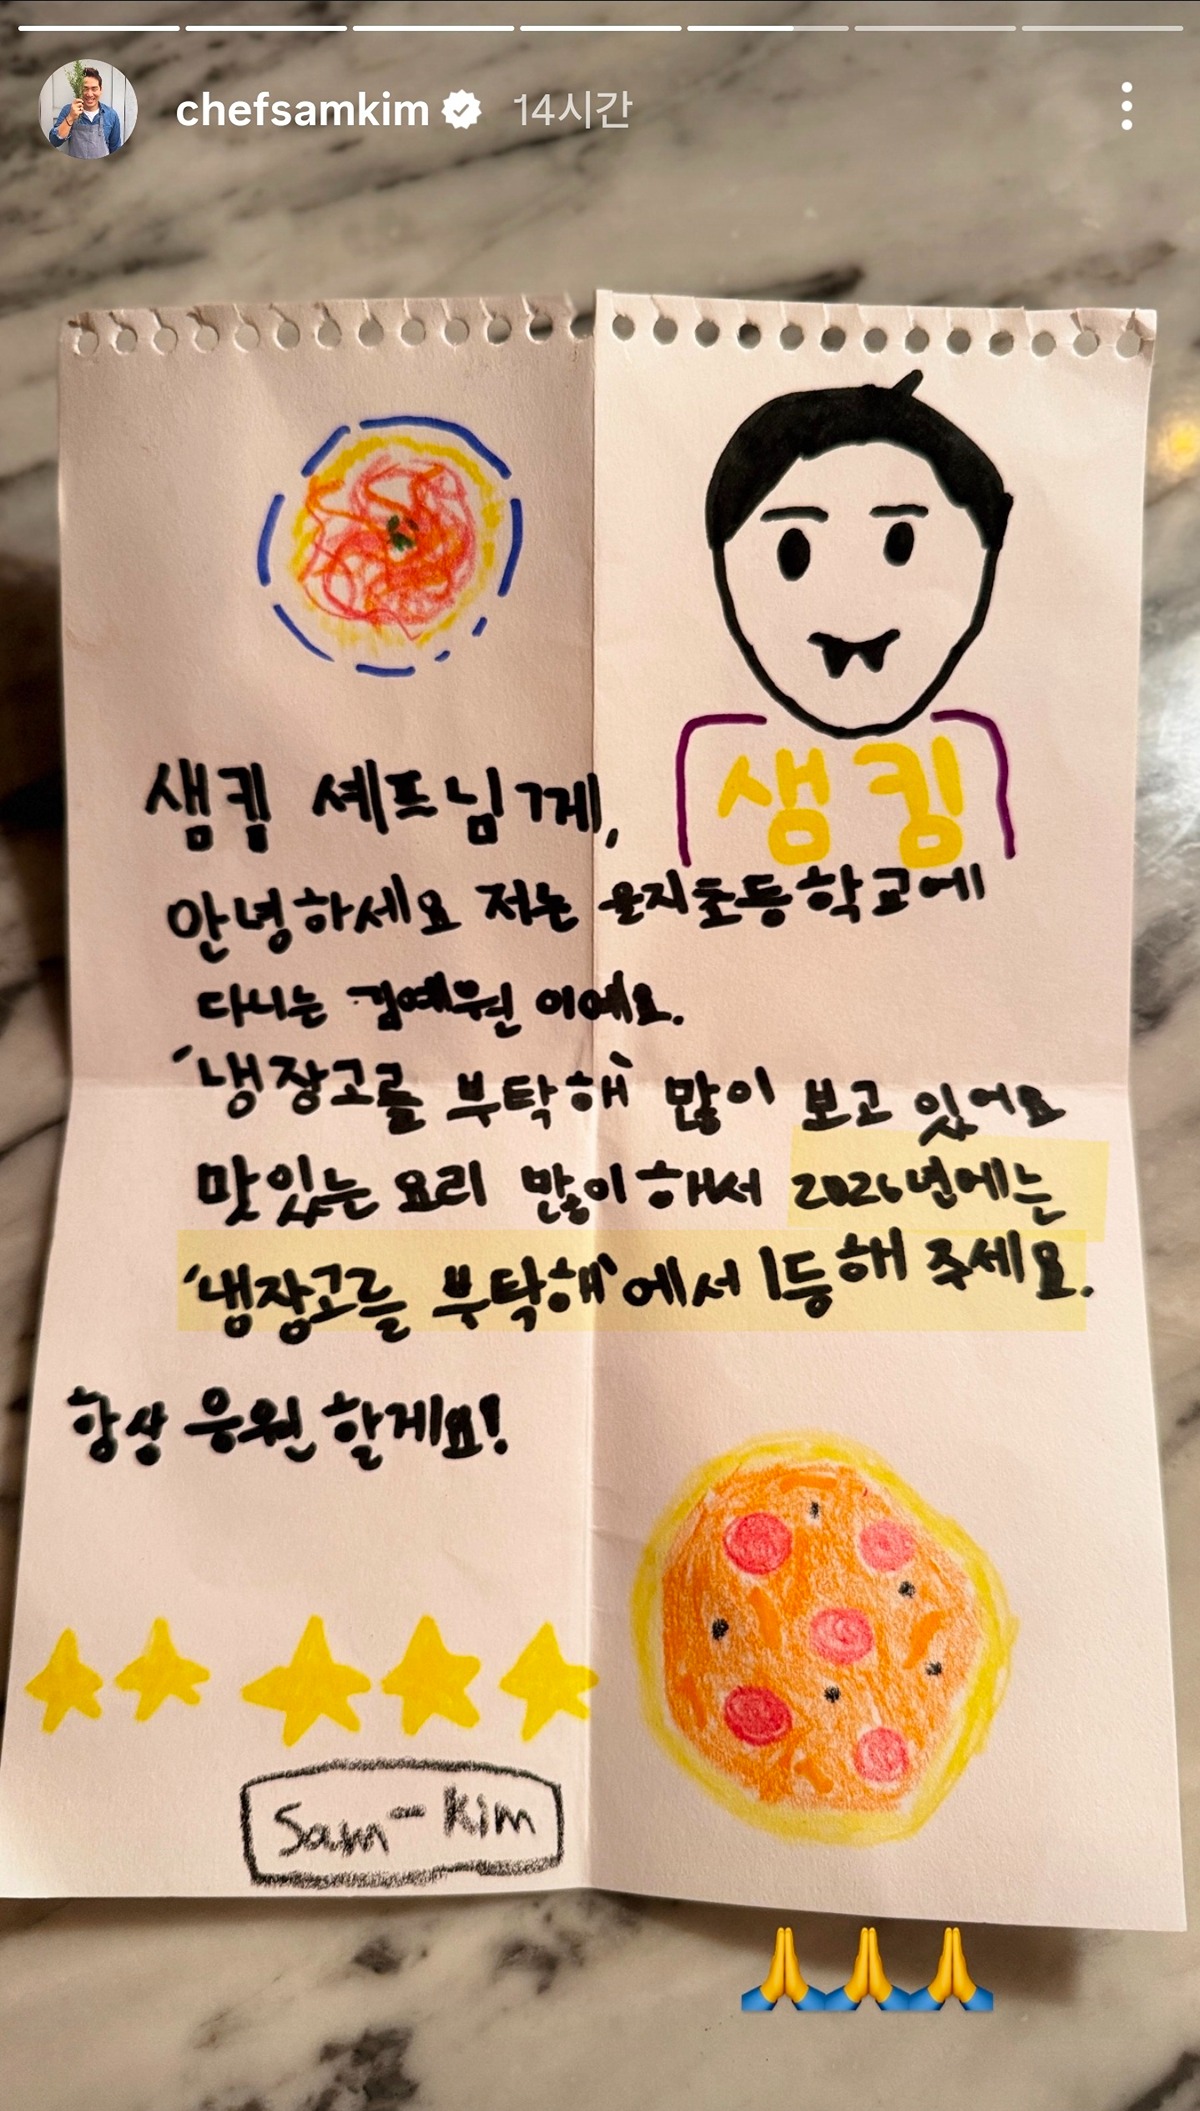 chefsamkim 14시간
샘킴 셰프님께,
샘킹
안녕하세요 저는 을지초등학교에
다니는 김예원 이예요.
'냉장고를 부탁해' 많이 보고 있어요
맛있는 요리 많이 해서 2026년에는
'냉장고를 부탁해'에서 1등해 주세요.
항상 응원 할게요!
Sam-kim